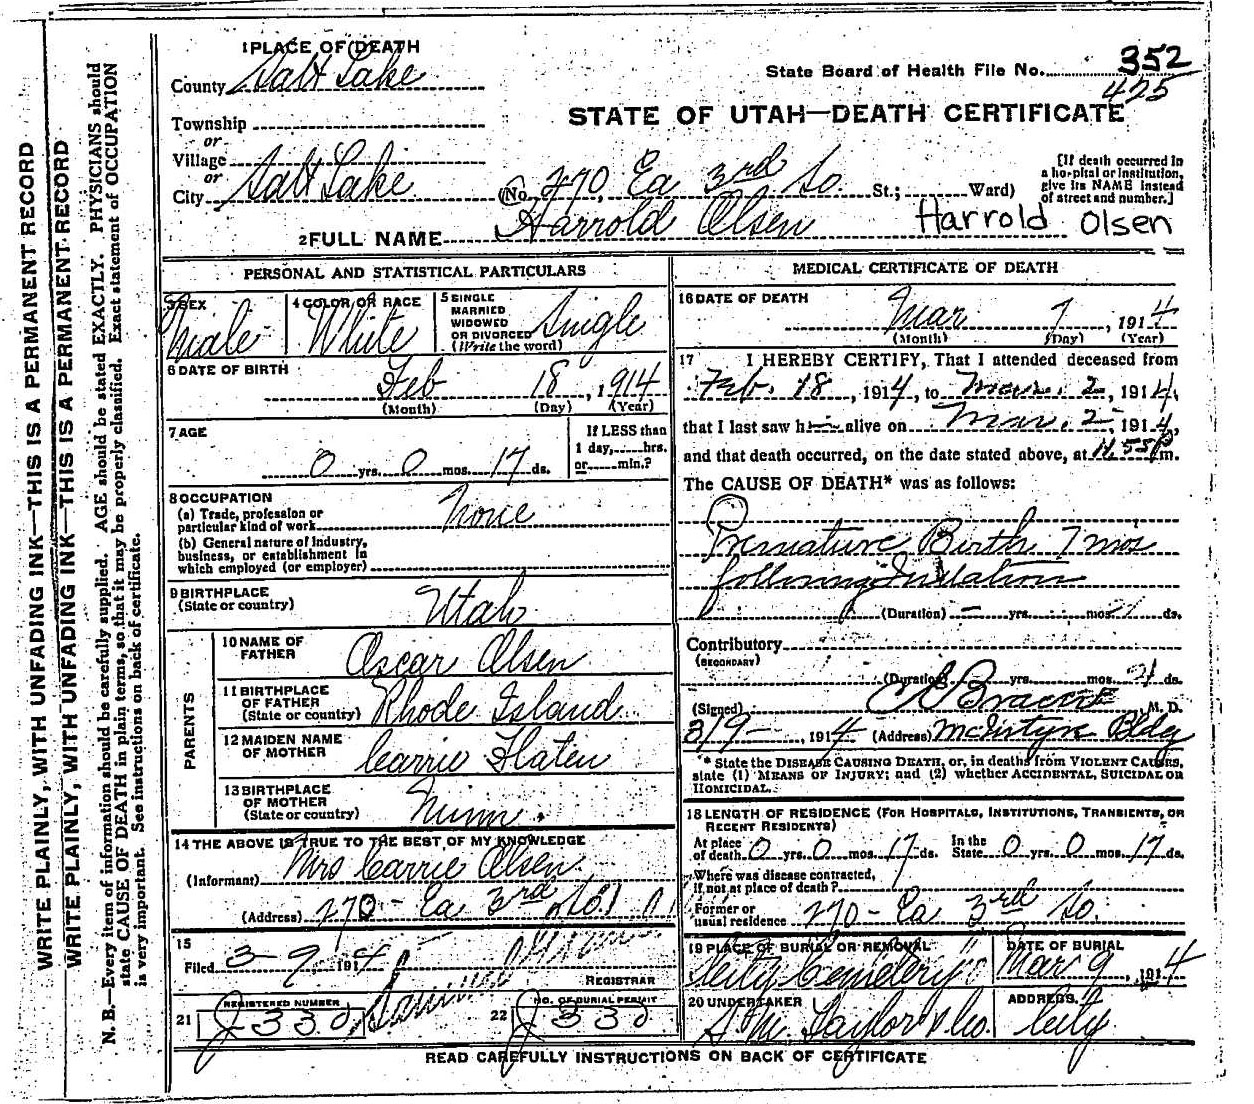 WRITE PLAINLY, WITH UNFADING INK—THIS IS A PERMANENT RECORD
WRITE PLAINLY, WITH UNFADING INK—THIS IS A PERMANENT RECORD
N. B.—Every item of information should be carefully supplied. AGE should be stated EXACTLY. PHYSICIANS should
state CAUSE OF DEATH in plain terms, so that it may be properly classified. Exact statement of OCCUPATION
is very important. See instructions on back of certificate.
1 PLACE OF DEATH
County Salt Lake
State Board of Health File No. 352
425
STATE OF UTAH—DEATH CERTIFICATE
Township
or
Village
or
City Salt Lake (No. 270, Ea 3rd So. St.; Ward)
[If death occurred in
a hospital or institution,
give its NAME instead
of street and number.]
2 FULL NAME Harrold Olsen Harrold Olsen
PERSONAL AND STATISTICAL PARTICULARS
3 SEX Male
4 COLOR OR RACE White
5 SINGLE
MARRIED
WIDOWED
OR DIVORCED
(Write the word) Single
6 DATE OF BIRTH
Feb 18, 1914
(Month) (Day) (Year)
7 AGE
0 yrs. 0 mos. 17 ds.
If LESS than
1 day, hrs.
or min.?
8 OCCUPATION
(a) Trade, profession or
particular kind of work None
(b) General nature of industry,
business, or establishment in
which employed (or employer)
9 BIRTHPLACE
(State or country) Utah
PARENTS
10 NAME OF
FATHER Oscar Olsen
11 BIRTHPLACE
OF FATHER
(State or country) Rhode Island
12 MAIDEN NAME
OF MOTHER Carrie Flaten
13 BIRTHPLACE
OF MOTHER
(State or country) Minn.
14 THE ABOVE IS TRUE TO THE BEST OF MY KNOWLEDGE
(Informant) Mrs Carrie Olsen
(Address) 270 - Ea 3rd So.
15
Filed 3-9 1914
REGISTRAR
21 REGISTERED NUMBER J 330
22 NO. OF BURIAL PERMIT J 330
MEDICAL CERTIFICATE OF DEATH
16 DATE OF DEATH
Mar 7, 1914
(Month) (Day) (Year)
17 I HEREBY CERTIFY, That I attended deceased from
Feb. 18, 1914, to Mar. 2, 1914,
that I last saw him alive on Mar. 2, 1914,
and that death occurred, on the date stated above, at 11.55 P m.
The CAUSE OF DEATH* was as follows:
Premature Birth 7 mos
following
(Duration) yrs. mos. ds.
Contributory
(SECONDARY)
(Duration) yrs. mos. ds.
(Signed) M. D.
3/9-, 1914 (Address) McIntyre Bldg
* State the DISEASE CAUSING DEATH, or, in deaths from VIOLENT CAUSES,
state (1) MEANS OF INJURY; and (2) whether ACCIDENTAL, SUICIDAL OR
HOMICIDAL.
18 LENGTH OF RESIDENCE (FOR HOSPITALS, INSTITUTIONS, TRANSIENTS, OR
RECENT RESIDENTS)
At place
of death 0 yrs. 0 mos. 17 ds.
In the
State 0 yrs. 0 mos. 17 ds.
Where was disease contracted,
if not at place of death?
Former or
usual residence 270 - Ea 3rd So.
19 PLACE OF BURIAL OR REMOVAL
City Cemetery
DATE OF BURIAL
Mar 9, 1914
20 UNDERTAKER
S. M. Taylor & Co.
ADDRESS
City
READ CAREFULLY INSTRUCTIONS ON BACK OF CERTIFICATE